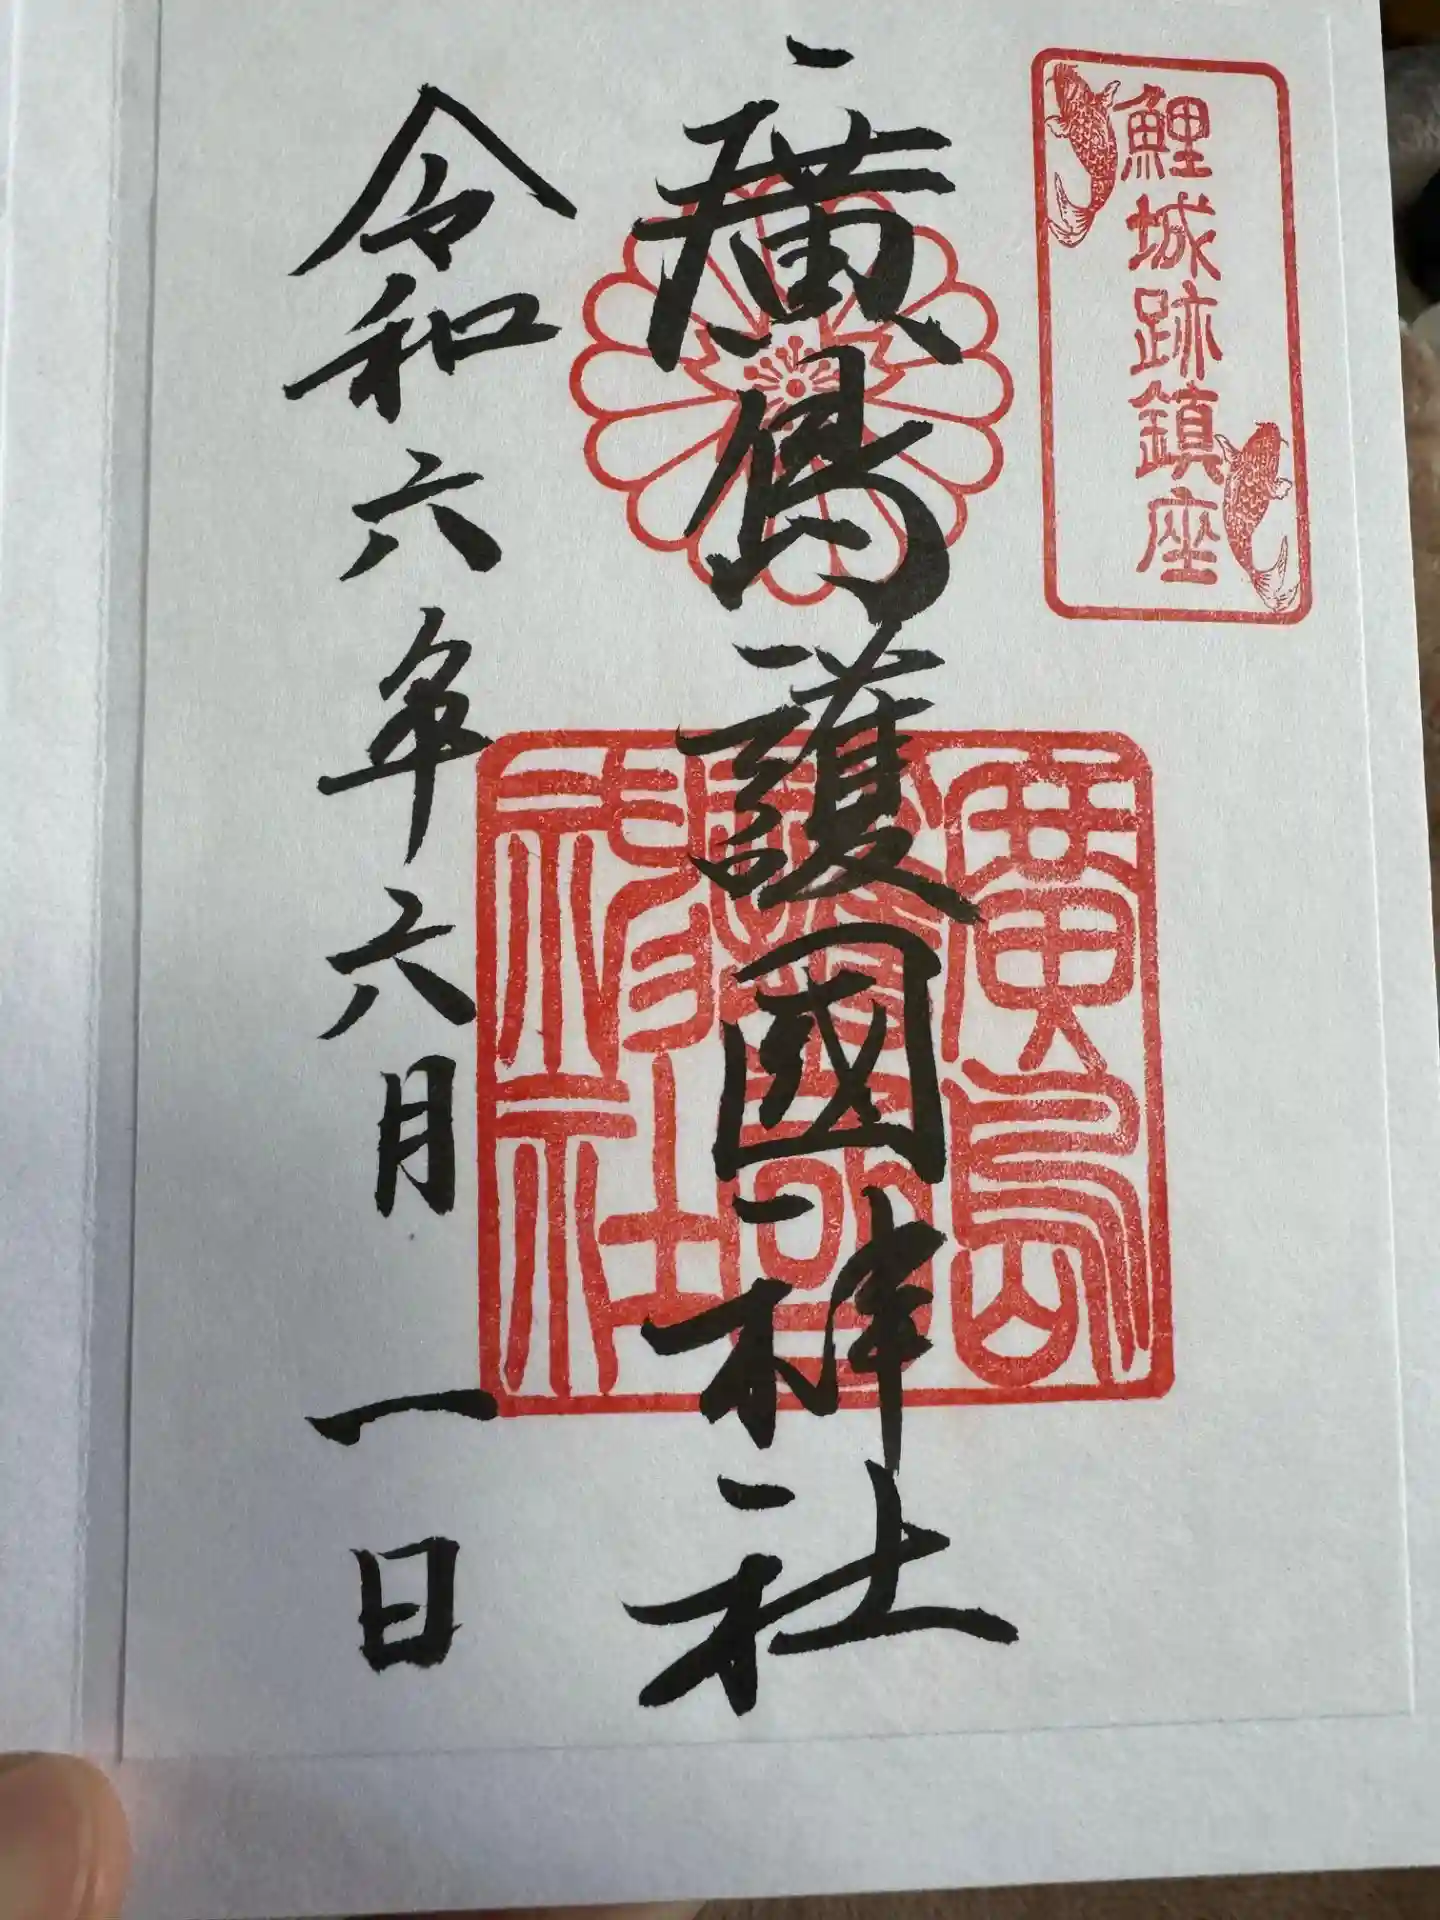 鯉城跡鎮座
廣島護國神社
廣島
護國
神社
令和六年六月一日